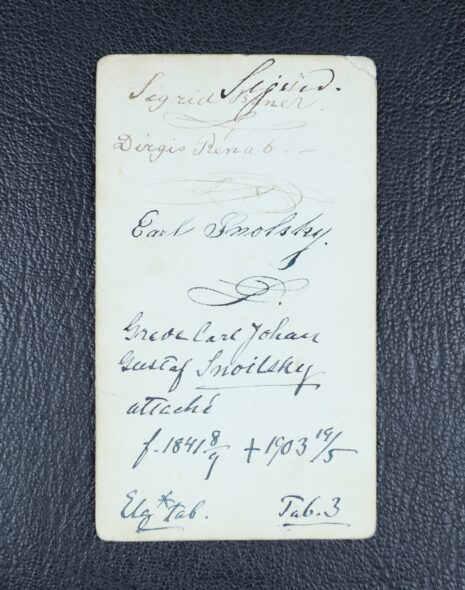 Sigrid
Sigrid
Dirgis Renab. —
Earl Snolsky.
Greve Carl Johan
Gustaf Snoilsky
attaché
f. 1841 8/9 + 1903 19/5
Elg* tab. Tab. 3